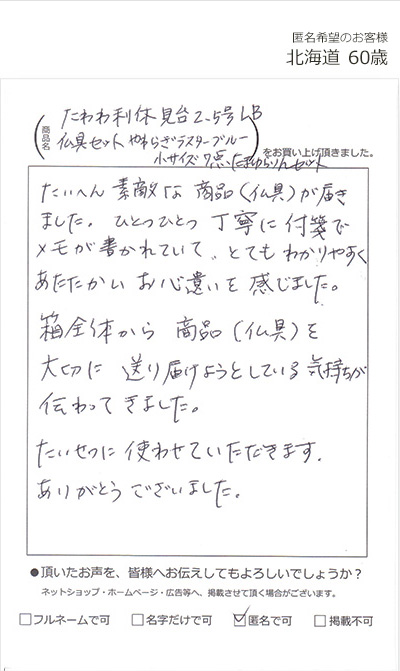 匿名希望のお客様
北海道 60歳
商品名
たわわ利休 見台 2.5号 LB
仏具セット やわらぎラスターブルー
小サイズ 7点 たまゆらりんセット
をお買い上げ頂きました。
たいへん 素敵な 商品(仏具)が届き
ました。ひとつひとつ 丁寧に 付箋で
メモが書かれていて、とても わかりやすく
あたたかい お心遣いを 感じました。
箱全体から 商品(仏具)を
大切に 送り届けようとしている 気持ちが
伝わって きました。
たいせつに 使わせていただきます。
ありがとう ございました。
●頂いたお声を、皆様へお伝えしてもよろしいでしょうか?
ネットショップ・ホームページ・広告等へ、掲載させて頂く場合がございます。
□フルネームで可 □名字だけで可 ☑匿名で可 □掲載不可